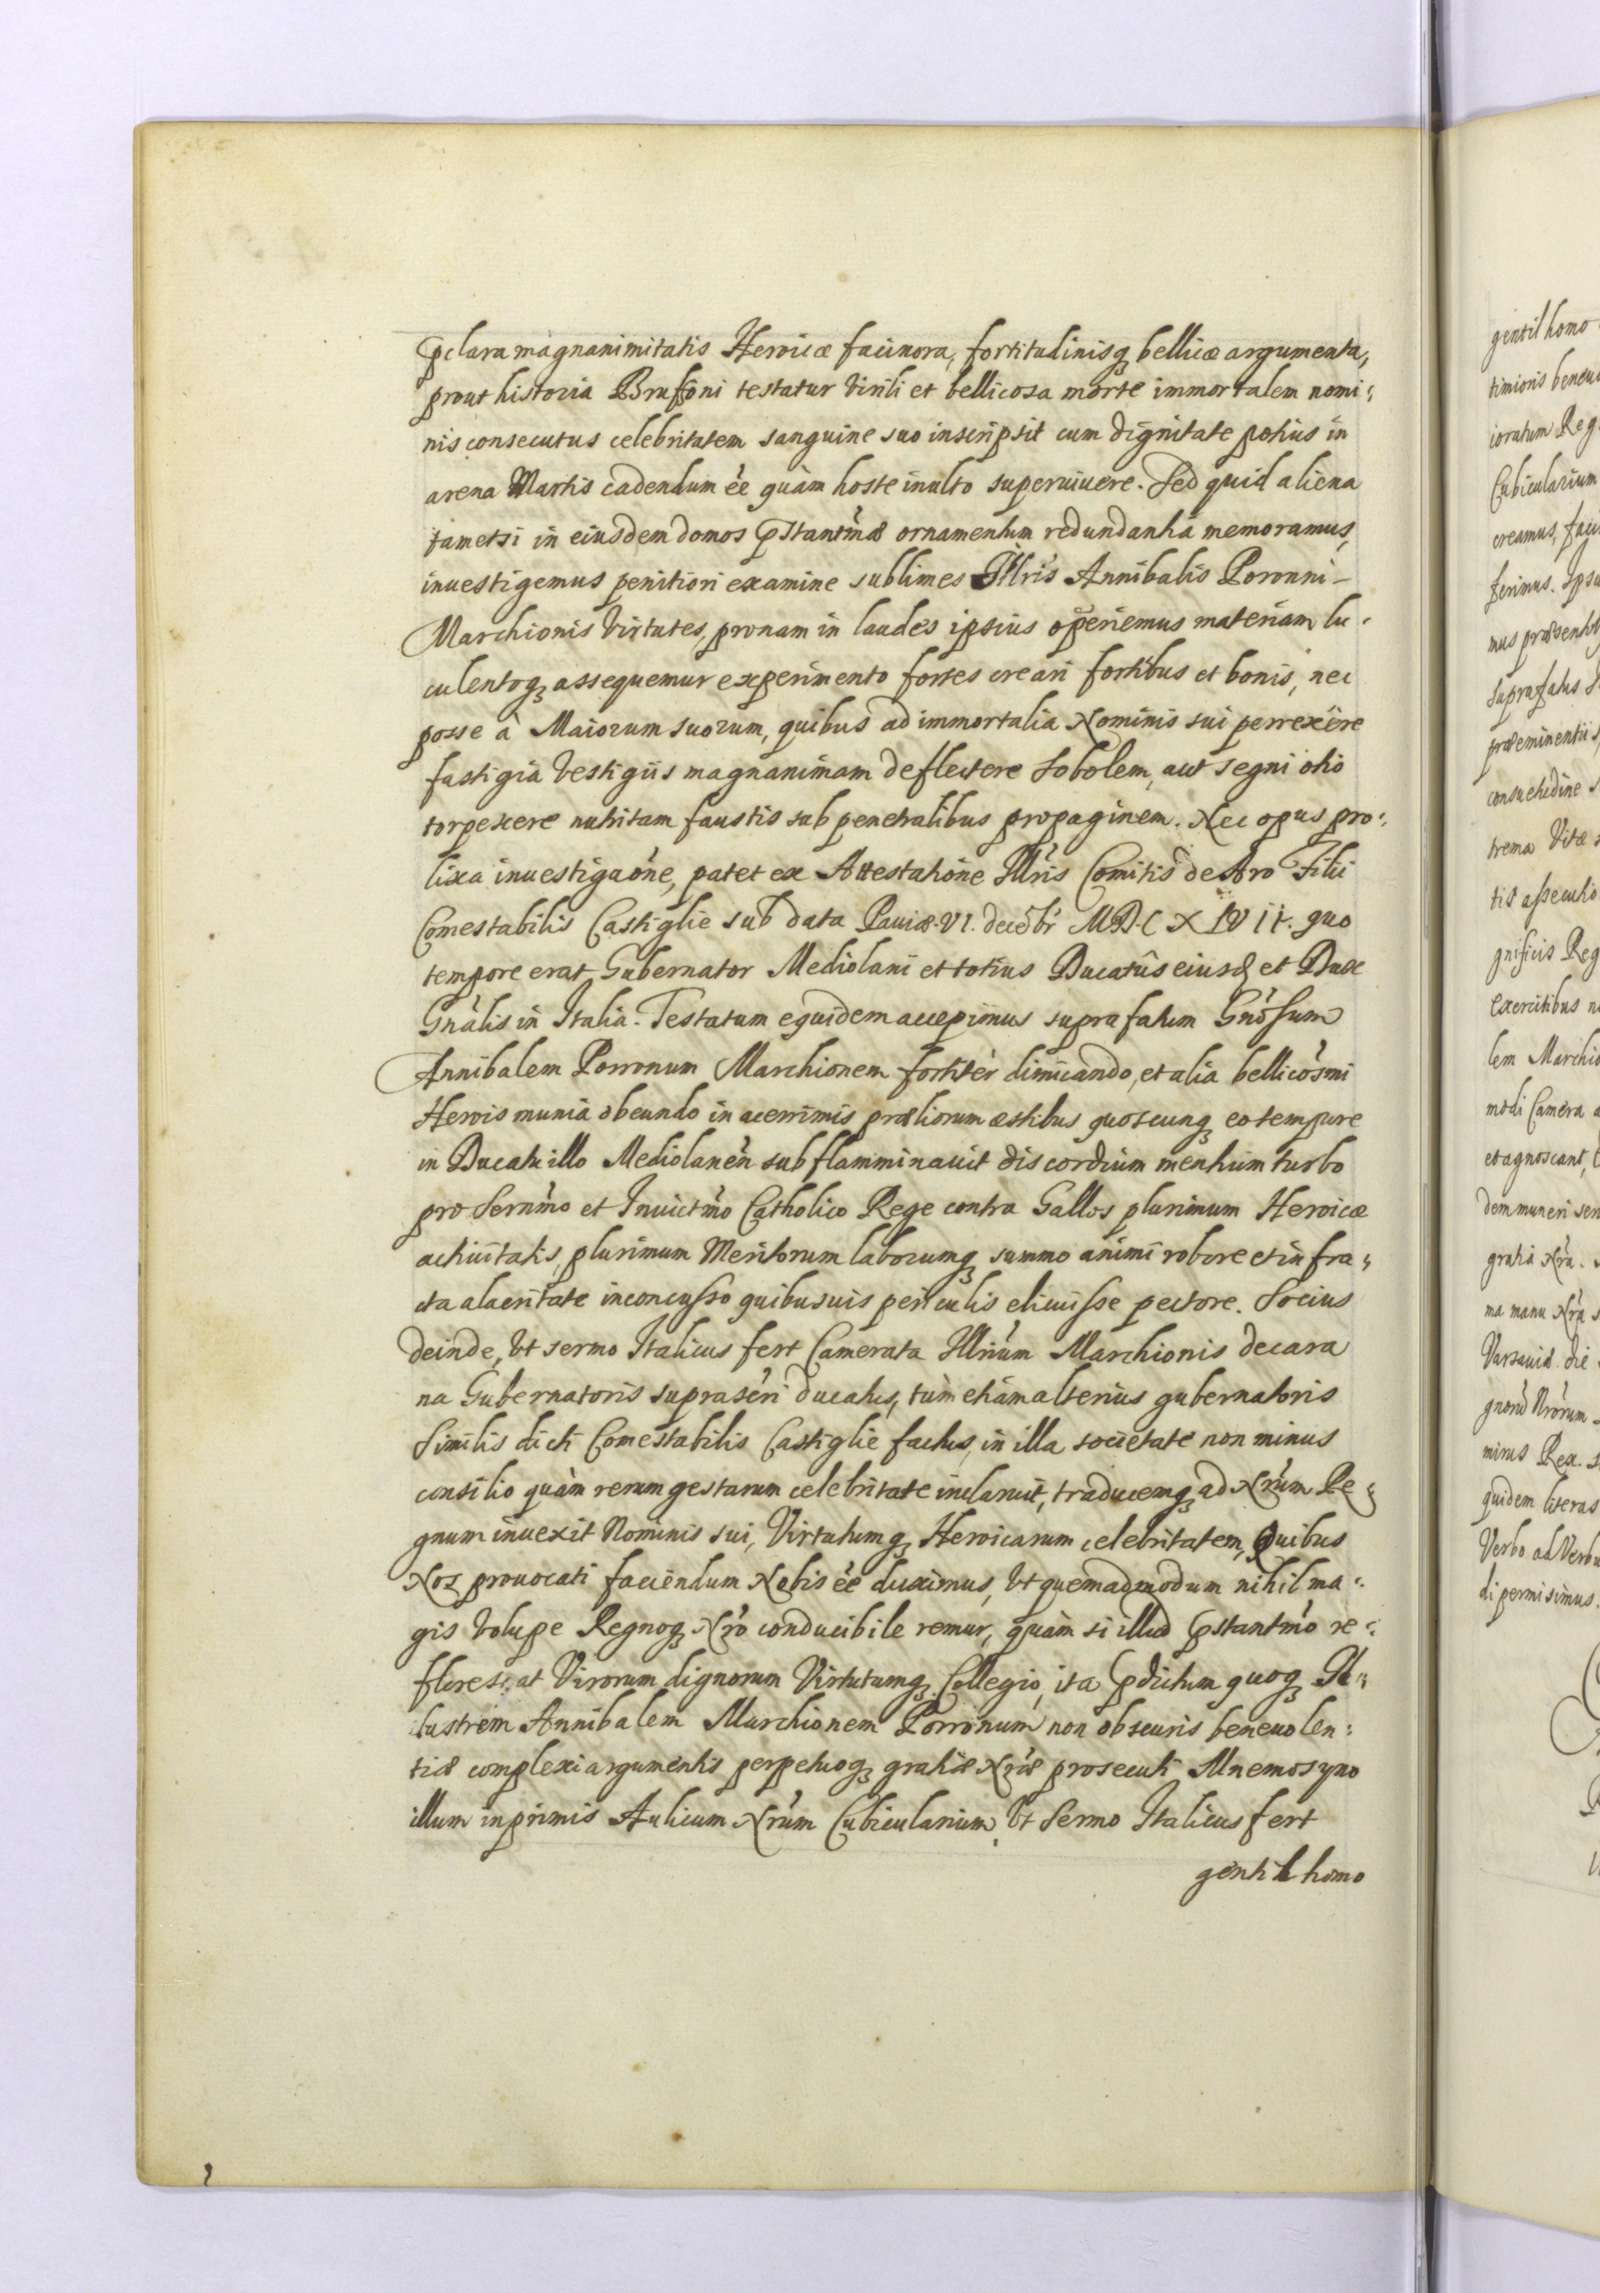 pclara magnanimitatis Heroicæ facinora, fortitudinisq bellicæ argumenta,
prout historia Brusoni testatur virili et bellicosa morte immortalem nomi:
nis consecutus celebritatem sanguine suo inscripsit cum dignitate potius in
arena Martis cadendum eē quàm hoste inulto superuiuere. Sed quid aliena
tametsi in eiusdem domos pstantmæ ornamentum redundantia memoramus,
inuestigemus penitiori examine sublimes Illris Annibalis Poronni-
Marchionis virtutes, pronam in laudes ipsius operiemus materiam lu:
culentoq assequemur experimento fortes creari fortibus et bonis, nec
posse à Maiorum suorum, quibus ad immortalia Nominis sui perrexêre
fastigia vestigiis magnanimam deflectere sobolem, aut segni otio
torpescere nutritam faustis sub penetralibus propaginem. Nec opus pro:
lixa inuestigaone, patet ex Attestatione Illris Comitis de Aro Filii
Comestabilis Castiglie sub data Pauiæ. VI. decebr MDCXLVII. quo
tempore erat Gubernator Mediolani et totius Ducatûs eiusd et Dux
Gnàlis in Italia. Testatum equidem accepimus suprafatum Gnosum
Annibalem Porronum Marchionem fortitèr dimicando, et alia bellicosmi
Herois munia obeundo in acerrimis præliorum æstibus quoscunq eo tempore
in Ducatu illo Mediolanen subflamminauit discordium mentium turbo
pro Sernmo et Inuictmo Catholico Rege contra Gallos plurimum Heroicæ
actiuitatis, plurimum Meritorum laborumq summo animi robore et infra:
cta alacritate inconcusso quibusuis periculis elicuisse pectore. Socius
deinde, vt sermo Italicus fert Camerata Illrium Marchionis de cara
na Gubernatoris suprasèri ducatus, tùm etiàm alterius gubernatoris
Similis dicti Comestabilis Castiglie factus, in illa societate non minus
consilio quàm rerum gestarum celebritate inclaruit, traducemq ad Nrum Re:
gnum inuexit Nominis sui, Virtutumq Heroicarum celebritatem, Quibus
Nos prouocati faciendum Nobis eē duximus, vt quemadmodum nihil ma:
gis volupe Regnoq Nro conducibile remur, quàm si illud pstantmo re:
florescat Virorum dignorum Virtutumq Collegio, ita pdictum quoq Il:
lustrem Annibalem Marchionem Porronum non obscuris beneuolen:
tiæ complexi argumentis perpetuoq gratiæ Nræ prosecuti Mnemosyno
illum inprimis Aulicum Nrum Cubicularium, vt Sermo Italicus fert
gentilhomo
gentilhomo
ioratum Reg
Cubicularium
creamus, faci
ferimus. Ipsu
suprafatus
præeminentiis,
consuetudine s
trema Vitæ s
tis assecutio
gnificis Reg
exercitibus n
lem Marchio
modi Camera a
et agnoscant,
dem muneri ser
gratia Nra.
ma manu Nra s
Varsauiæ die
mirus Rex. s
quidem literas
Verbo ad Verbu
di permisimus.